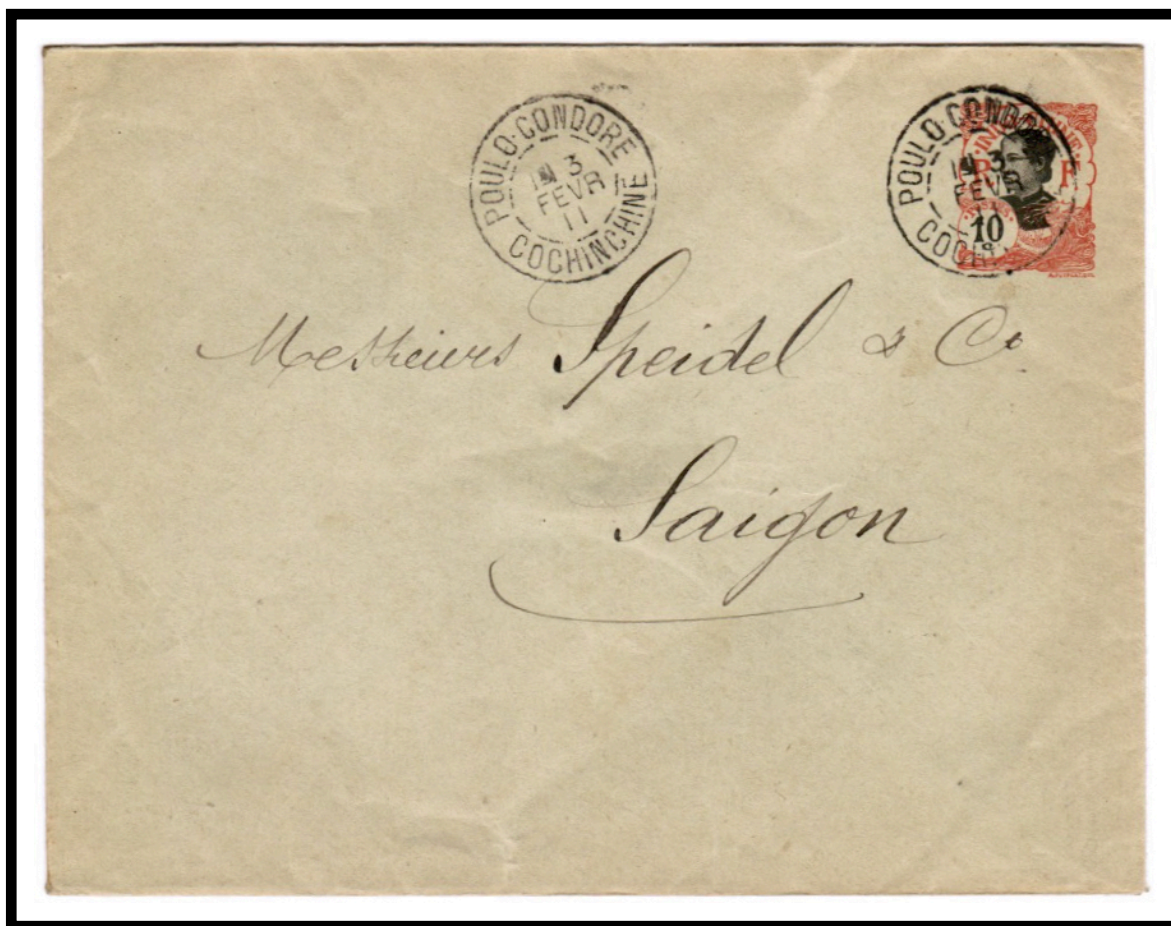 POULO-CONDORE
3
FEVR
11
COCHINCHINE
POULO-CONDORE
3
FEVR
11
COCHI
R F
10
Messieurs Speidel & Co.
Saigon